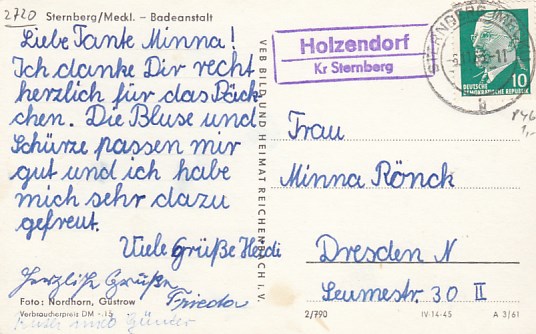 2720
Sternberg/Meckl. – Badeanstalt
Liebe Tante Minna!
Ich danke Dir recht
herzlich für das Päck-
chen. Die Bluse und
Schürze passen mir
gut und ich habe
mich sehr dazu
gefreut.
Viele Grüße Heidi
Herzliche Grüße
Frieda
Foto: Nordhorn, Güstrow
Verbraucherpreis DM -.15
und Günter
VEB BILD UND HEIMAT REICHENBACH I. V.
Holzendorf
Kr Sternberg
STERNBERG (MECKL)
b
10
DEUTSCHE
DEMOKRATISCHE REPUBLIK
1,-
Frau
Minna Rönck
Dresden N
Leumestr. 30 II
2/790
IV-14-45
A 3/61